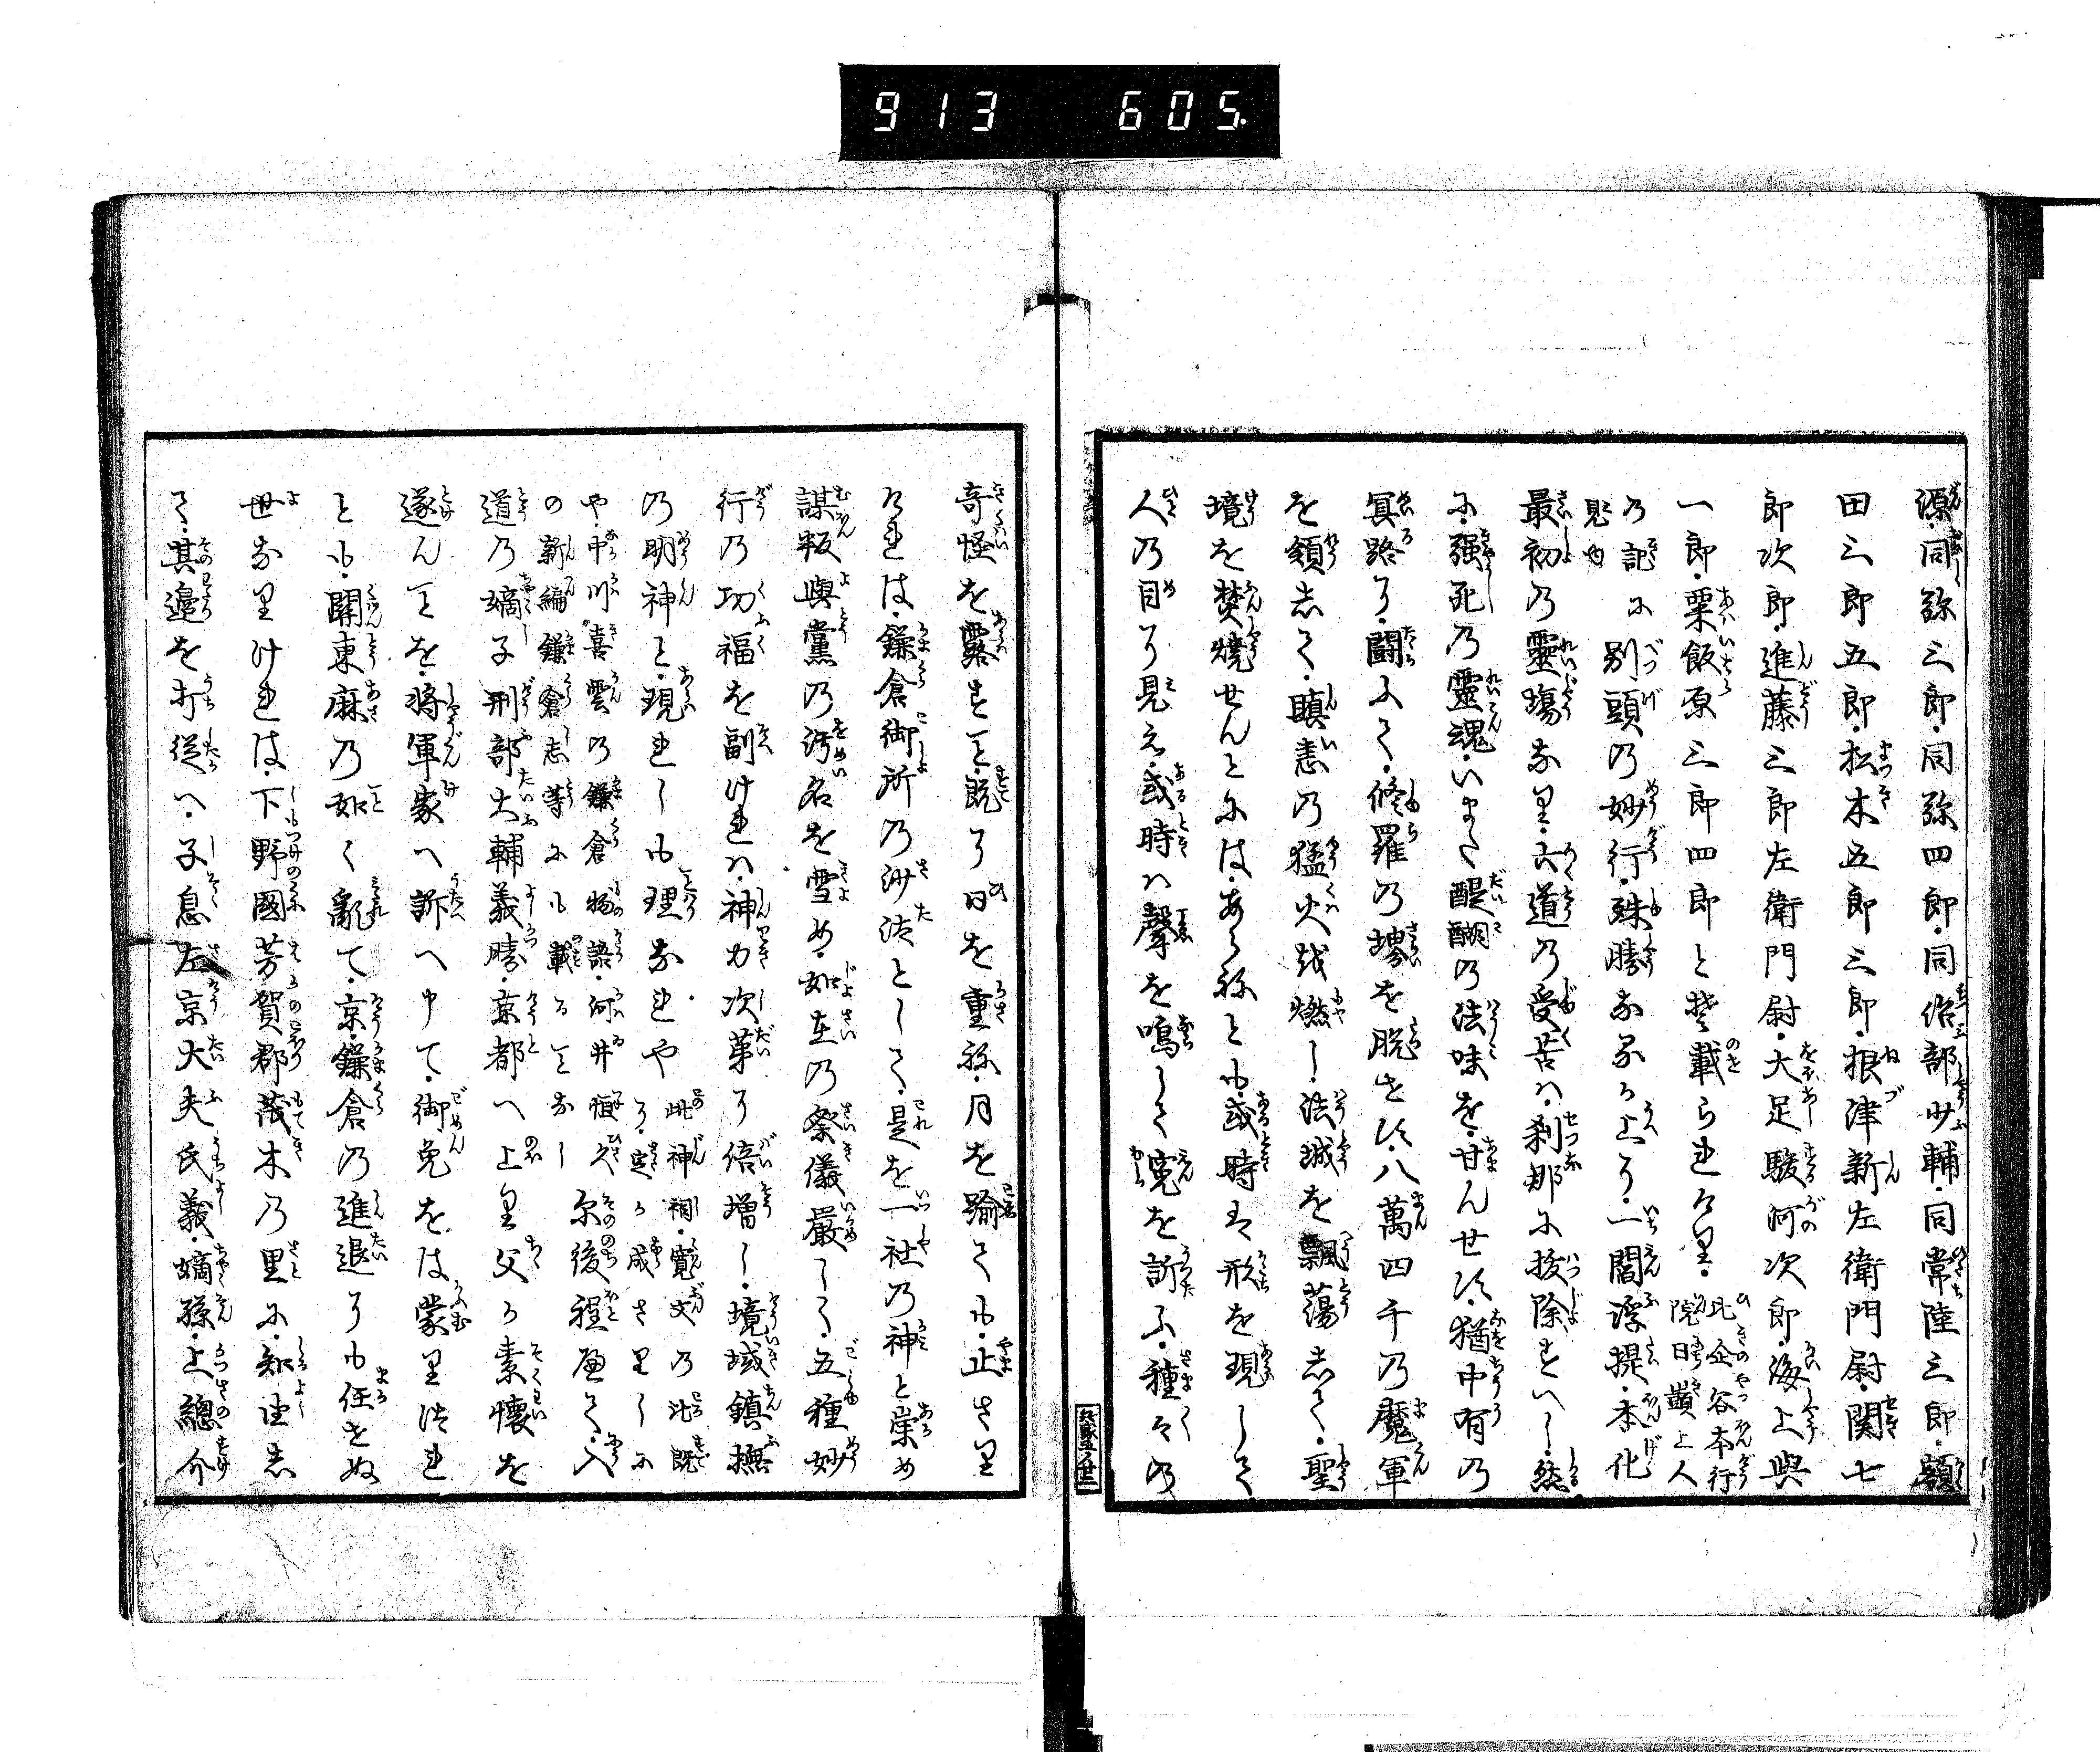 913 605
源・同弥三郎・同弥四郎・同治部少輔・同常陸三郎・額
田三郎五郎・松木五郎三郎・根津新左衛門尉・関七
郎次郎・進藤三郎左衛門尉・大足駿河次郎・海上與
一郎・粟飯原三郎四郎と楚載られけり・此企谷本行院日顗上人
の記に別頭の妙行・殊勝なるか上に・一閻浮提・本化
見ゆ
最初の靈塲なり・六道の受苦ハ・刹那に抜除すへし・然
に・强死の靈魂・いまた醍醐の法味を・甘んせす・猶中有の
冥路に・闘ふて・修羅の塲を脱せす・八萬四千の魔軍
を領して・瞋恚の猛火越燃し・法城を飄蕩して・聖
境を焚燒せんとには・あらねとも・或時は形を現して
人の目に見え・或時ハ聲を鳴して寃を訴ふ・種々の
奇怪を露すこと・既に日を重ね・月を踰ても・止さり
けれは・鎌倉御所の沙汰として・是を一社の神と崇め
謀叛與黨の汚名を雪め・如在の祭儀嚴して・五種妙
行の功福を副けれハ・神力次第に倍増し・境域鎮撫
の明神と・現れしも理なれや・此神祠・寛文の比既に・定か成さりしに
や・中川喜雲の鎌倉物語・河井恒久
の新編鎌倉志等にも載ることなし
尓後程歴て・入
道の嫡子刑部大輔義勝・京都へ上り父か素懐を
遂んことを・將軍家へ訴へ申て・御免をは蒙り徒れ
とも・關東麻の如く亂て・京・鎌倉の進退にも任せぬ
世なりけれは・下野國芳賀郡茂木の里に・知由し
て・其邊を打従へ・子息左京大夫氏義・嫡孫・上總介